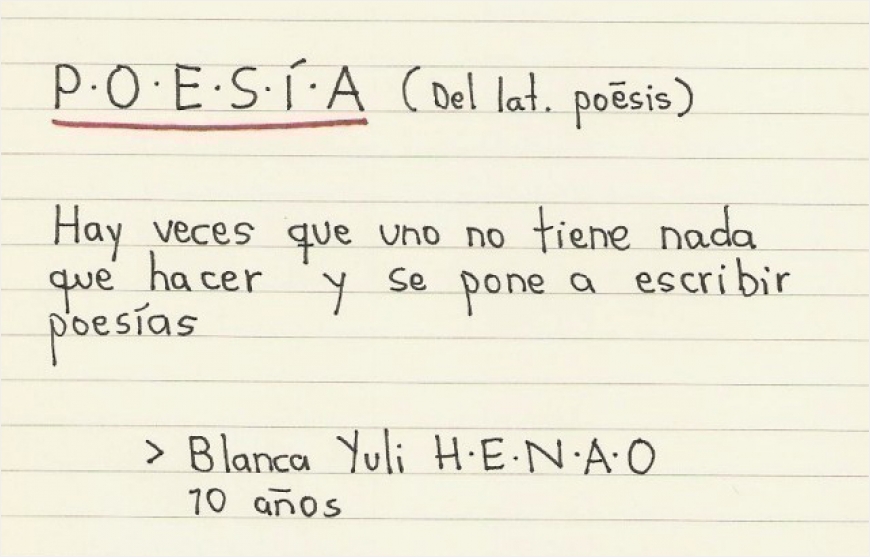 P·O·E·S·Í·A (Del lat. poēsis)
Hay veces que uno no tiene nada
que hacer y se pone a escribir
poesías
> Blanca Yuli H·E·N·A·O
10 años